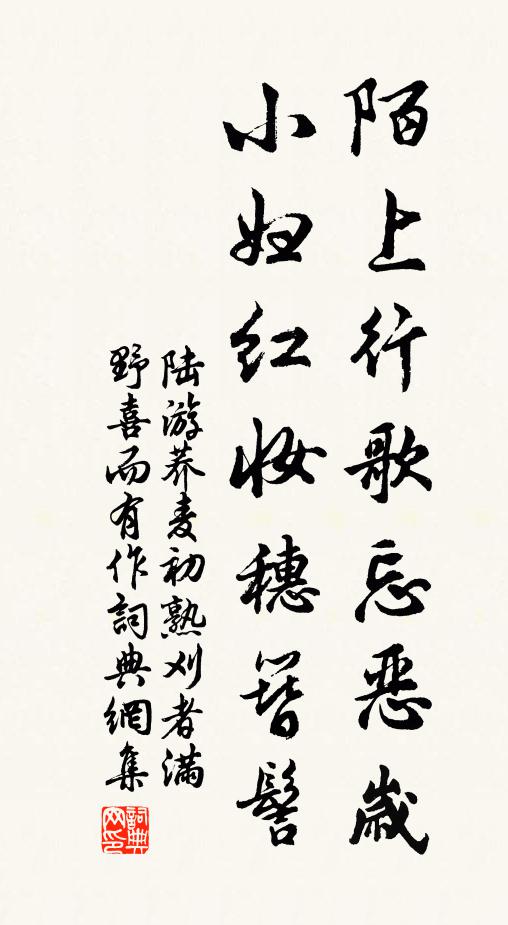 陌上行歌忘恶岁
小妇红妆穗簪髻
陆游荞麦初熟刈者满
野喜而有作詞典網集
詞典网印